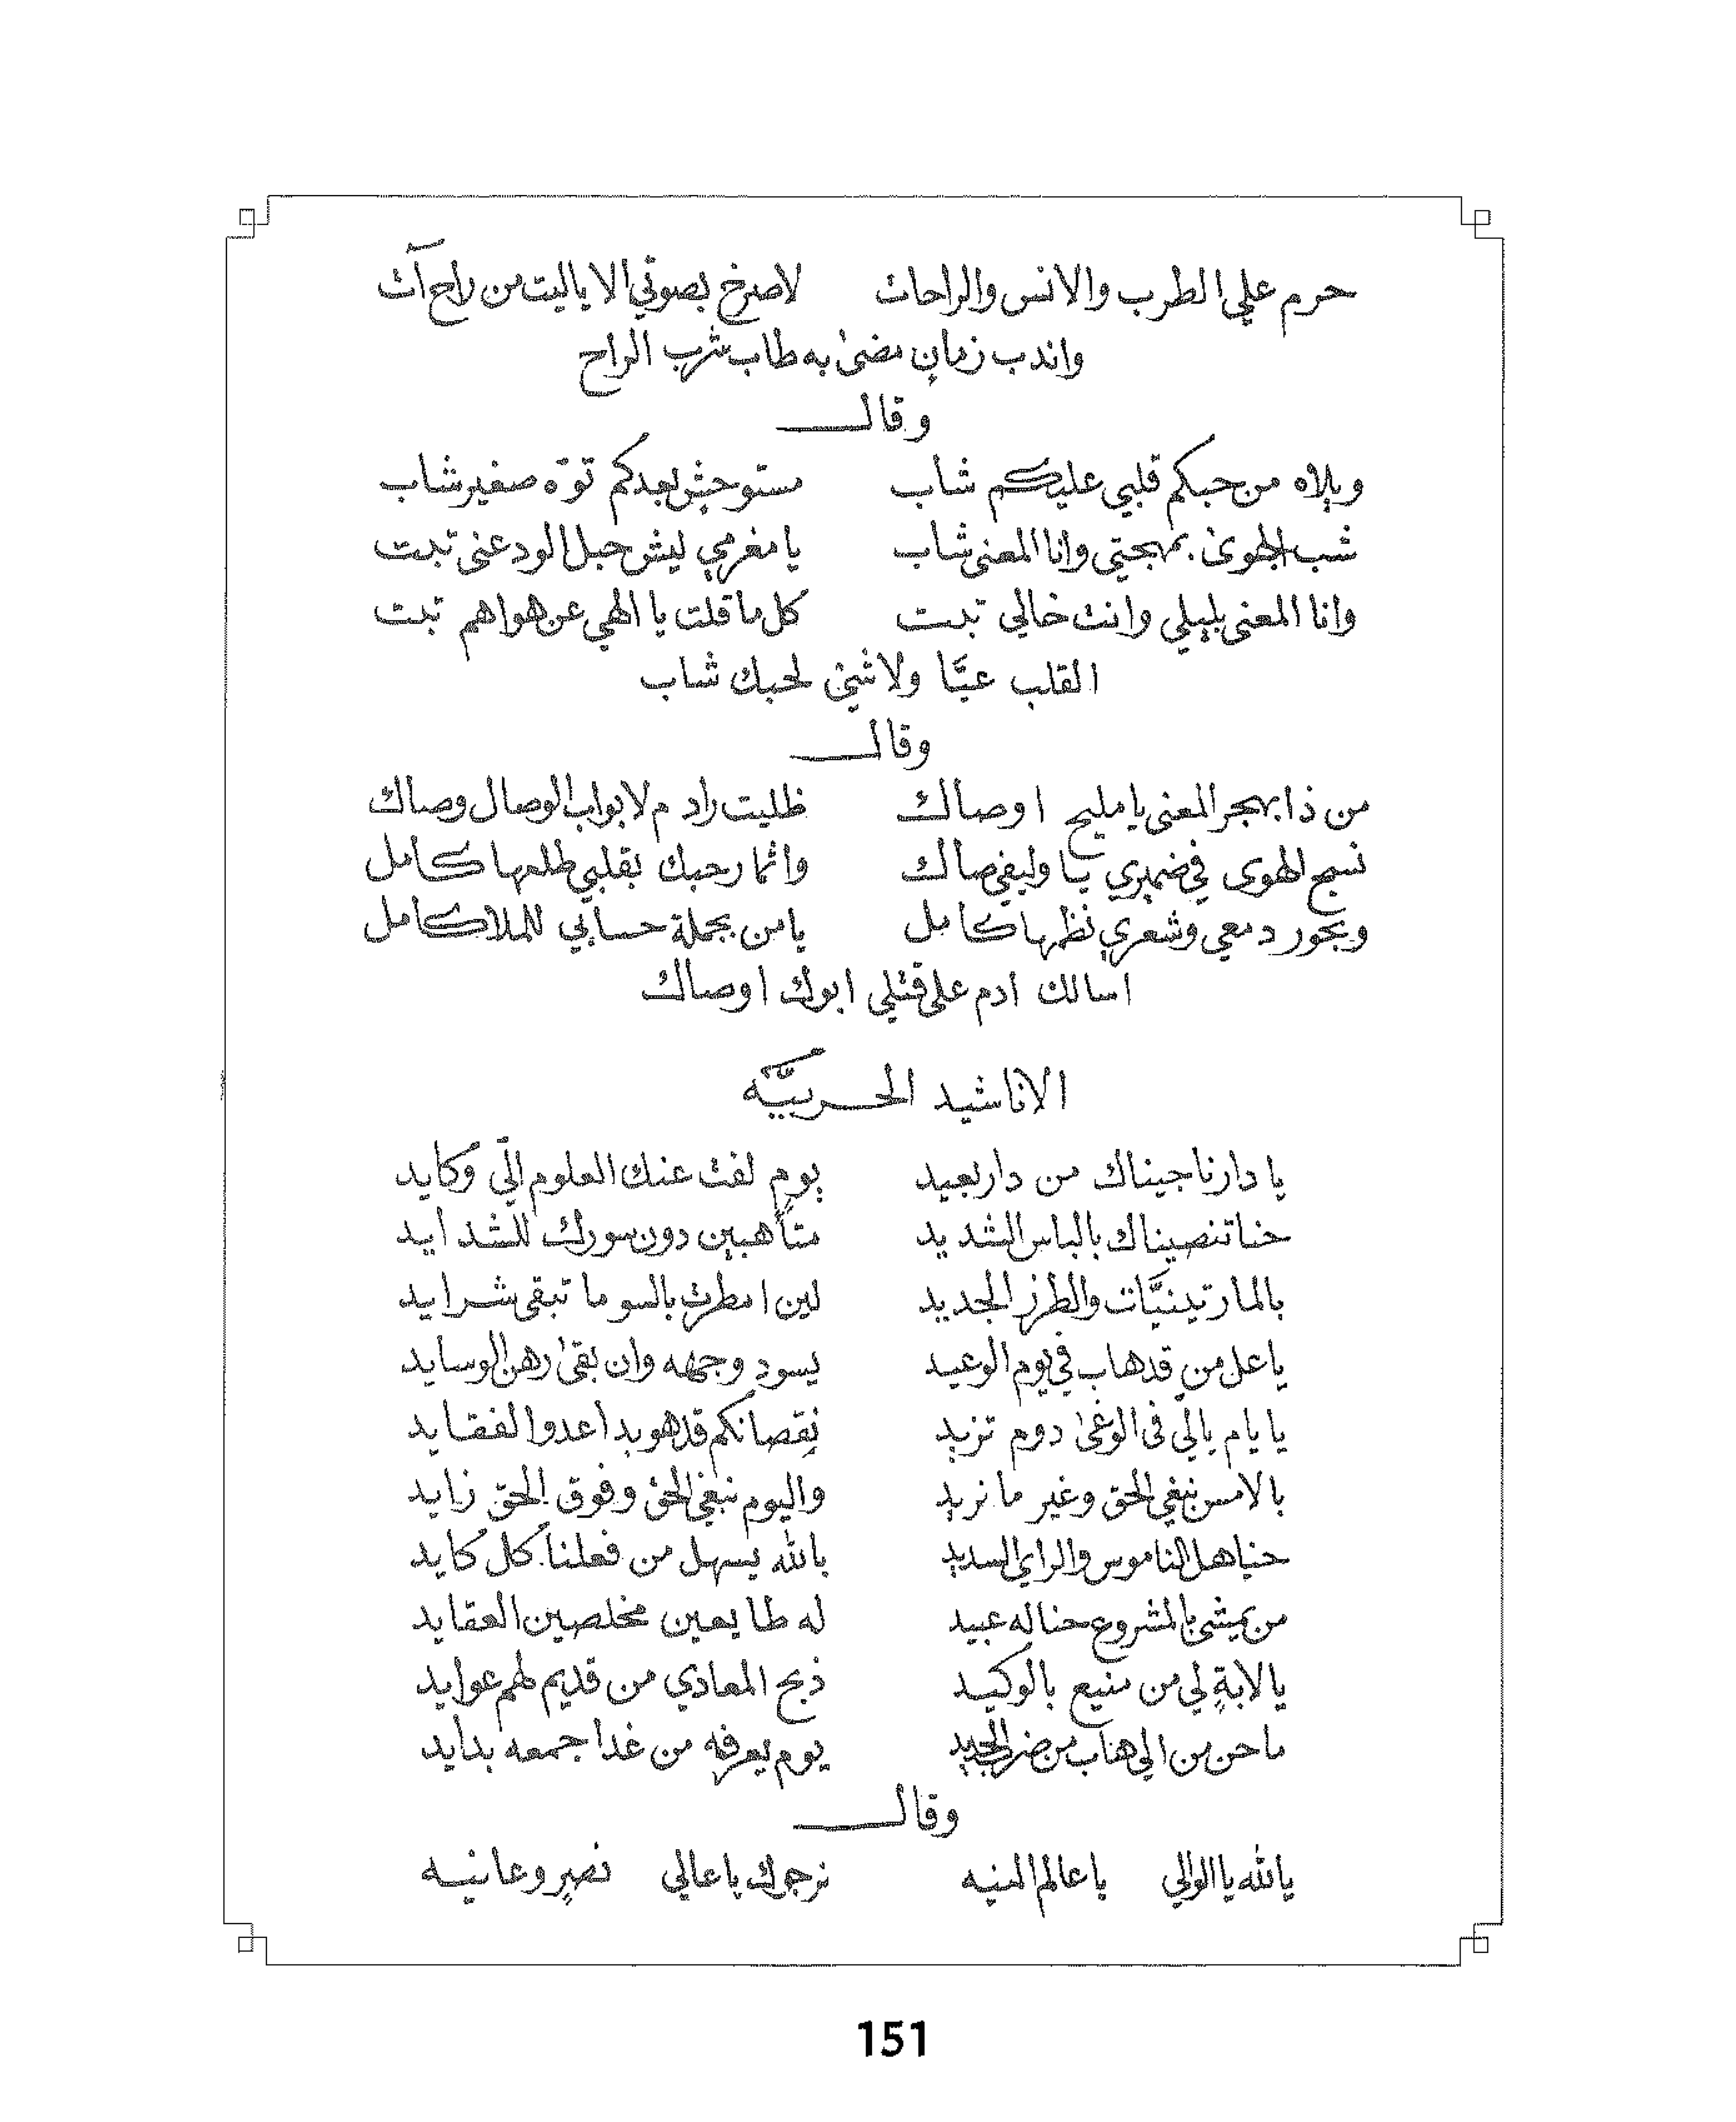 حرم علي الطرب والانس والراحات لاصرخ بصوتي الا ياليت من راح آت
واندب زمانٍ مضى به طاب شرب الراح
وقال
ويلاه من حبكم قلبي عليكم شاب مستوحش بعدكم توّه صغير شاب
شب الهوى بمهجتي وانا المعنى شاب يا مغرمي ليش حبل الود عنى تبت
وانا المعنى بليلي وانت خالي تبت كل ما قلت يا الهي عن هواهم تبت
القلب عيّا ولا شيٍ لحبك شاب
وقال
من ذا بهجر المعنى يا مليح اوصاك ظليت رادم لابواب الوصال وصاك
نسج الهوى في ضميري يا وليفي صاك واثمار حبك بقلبي طلعها كامل
وبحور دمعي وشعري نظمها كامل يا من بجملة حسابي للملا كامل
اسالك ادم على قتلي ابوك اوصاك
الاناشيد الحربيَّه
يا دارنا جيناك من دار بعيد يومٍ لفت عنك العلوم الّي وكايد
حنا تنصيناك بالباس الشديد متأهبين دون سورك للشدايد
بالمارتينيَّات والطرز الجديد لين امطرت بالسو ما تبقى شرايد
يا عل من قد هاب في يوم الوعيد يسود وجهه وان بقى رهن الوسايد
يا يام يالّي فى الوغى دوم تزيد نقصانكم قد هو بدا عدوا لفقايد
بالامس نبغي الحق وغير ما نريد واليوم نبغي الحق وفوق الحق زايد
حنا هل الناموس والراي السديد بالله يسهل من فعلنا كل كايد
من يمشى بالمشروع حنا له عبيد له طايعين مخلصين العقايد
يا لابةٍ لي من منيع بالوكيد ذبح المعادي من قديم لهم عوايد
ما حن من الي هاب من ضرب الحديد يوم يعرفه من غدا جمعه بدايد
وقال
يالله يا الوالي يا عالم المنيه نرجوك يا عالي نصرٍ وعانيه
151